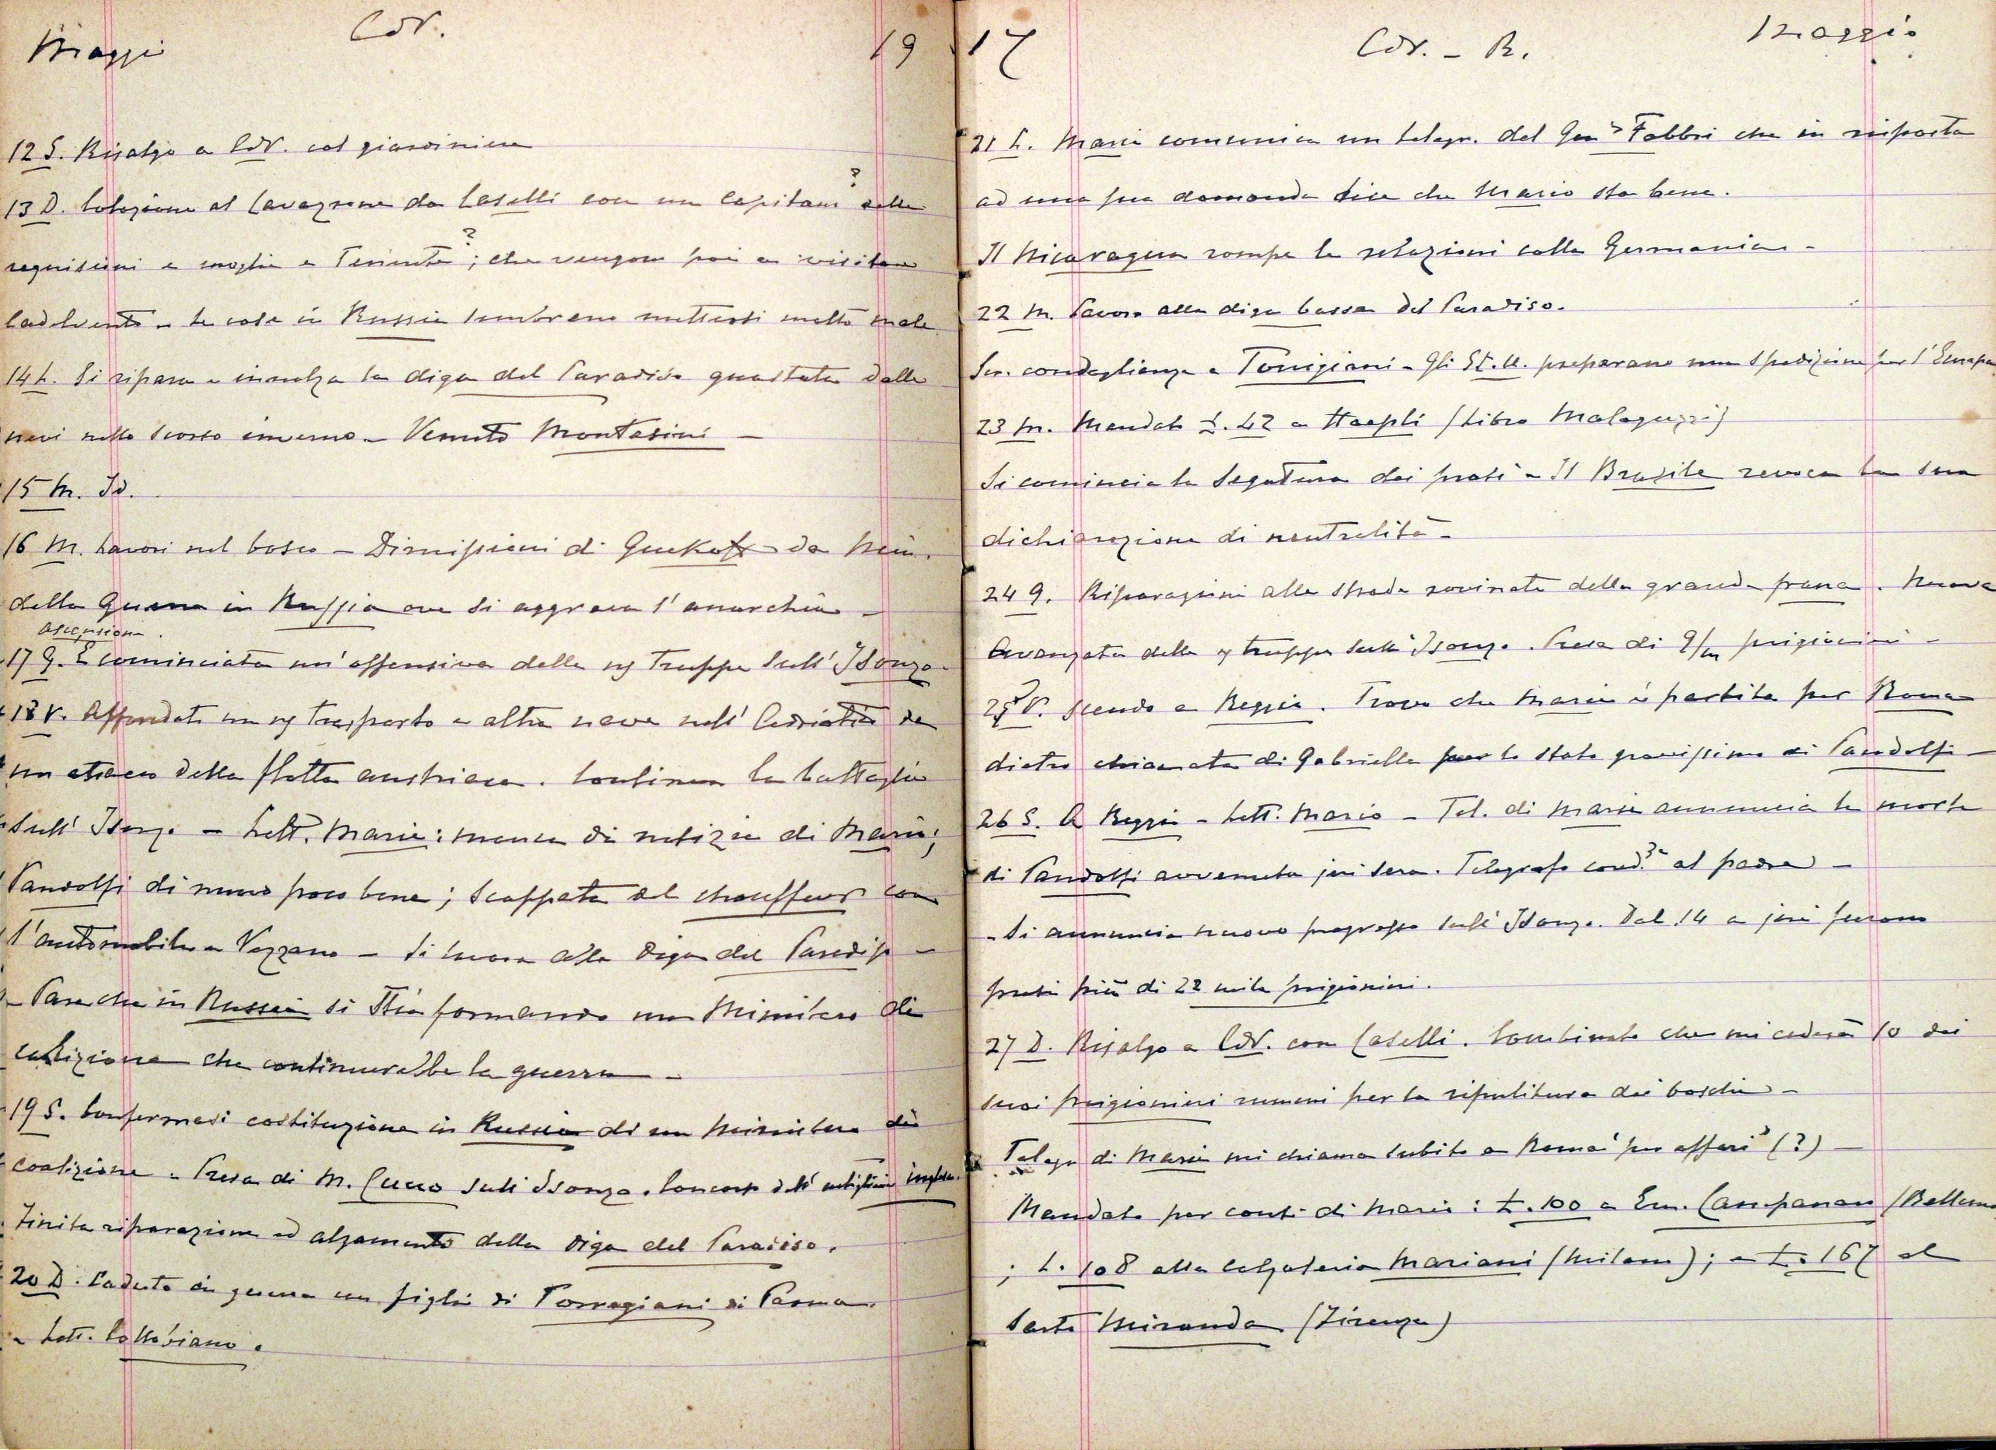 Maggio Cdv. 19
12 S. Risalgo a Cdv. col giardiniere
13 D. Colazione al Cavazzone da Caselli con un Capitano ? delle
requisizioni e moglie e Tenente ?; che vengono poi a visitare
Le cose in Russia sembrano mettersi molto male
14 L. Si ripara e innalza la diga del Paradiso guastata dalle
nevi nello scorso inverno - Venuto Montasini -
15 M. Id.
16 M. Lavori nel bosco - Dimissioni di Guckoff da Min.
della Guerra in Russia ove si aggrava l'anarchia -
Ascensione.
17 G. È cominciata un'offensiva delle ns Truppe sull'Isonzo
18 V. Affondati un ns trasporto e altra nave nell'Adriatico da
un attacco della flotta austriaca. Continua la battaglia
sull'Isonzo - Lett. Maria: manca di notizie di Mario;
Pandolfi di nuovo poco bene; scappata del chauffeur con
l'automobile a Vezzano - Si lavora alla Diga del Paradiso -
- Pare che in Russia si stia formando un Ministero di
coalizione che continuerebbe la guerra -
19 S. Confermasi costituzione in Russia di un Ministero di
coalizione - Presa di M. Cucco sull'Isonzo. Concorso dell'artiglieria inglese.
Finita riparazione ed alzamento della Diga del Paradiso.
20 D. Caduto in guerra un figlio di Torrigiani di Parma.
- Lett. Collobiano.
17 Cdv. - R. Maggio
21 L. Maria comunica un telegr. del Gen.le Fabbri che in risposta
ad una sua domanda dice che Mario sta bene.
Il Nicaragua rompe le relazioni colla Germania -
22 M. Lavoro alla diga bassa del Paradiso.
Scr. condoglianze a Torrigiani - Gli St. U. preparano una spedizione per l'Europa
23 M. Mandato £. 42 a Hoepli (Libro Malaguzzi)
Si comincia la segatura dei prati - Il Brasile revoca la sua
dichiarazione di neutralità -
24 G. Riparazioni alla strada rovinata della grande frana. Nuova
Avanzata delle ns truppe sull'Isonzo. Presa di 9/m prigionieri -
25 V. Scendo a Reggio. Trovo che Maria è partita per Roma
dietro chiamata di Gabriella per lo stato gravissimo di Pandolfi -
26 S. A Reggio - Lett. Mario - Tel. di Maria annuncia la morte
di Pandolfi avvenuta jeri sera. Telegrafo cond.ze al padre -
- Si annuncia nuovo progresso sull'Isonzo. Dal 14 a jeri furono
presi più di 22 mila prigionieri.
27 D. Risalgo a Cdv. con Caselli. Combinato che mi cederà 10 dei
suoi prigionieri rumeni per la ripulitura dei boschi -
Telegr. di Maria mi chiama subito a Roma "per affari" (?) -
Mandato per conto di Maria: £. 100 a Em. Campanari
; L. 108 alla calzoleria Mariani (Milano); - £. 167 al
Sarto Miranda (Firenze)